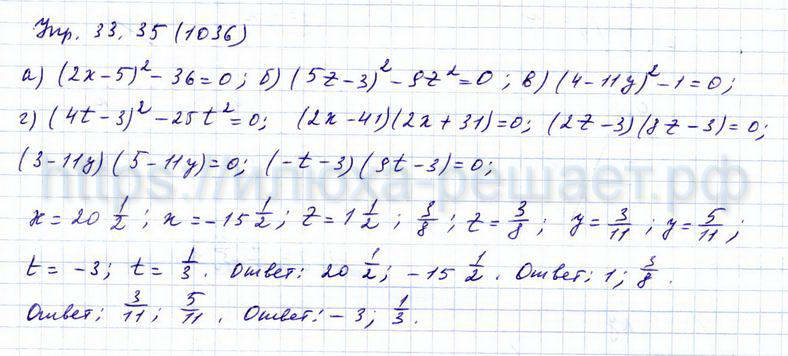 Упр. 33.35 (1036)
а) (2x-5)² - 36 = 0; б) (5z-3)² - 9z² = 0; в) (4-11y)² - 1 = 0;
г) (4t-3)² - 25t² = 0; (2x-41)(2x+31) = 0; (2z-3)(8z-3) = 0;
(3-11y)(5-11y) = 0; (-t-3)(9t-3) = 0;
https://илюха-решает.рф
x = 20 1/2; x = -15 1/2; z = 1 1/2; 3/8; z = 3/8; y = 3/11; y = 5/11;
t = -3; t = 1/3. Ответ: 20 1/2; -15 1/2. Ответ: 1; 3/8.
Ответ: 3/11; 5/11. Ответ: -3; 1/3.